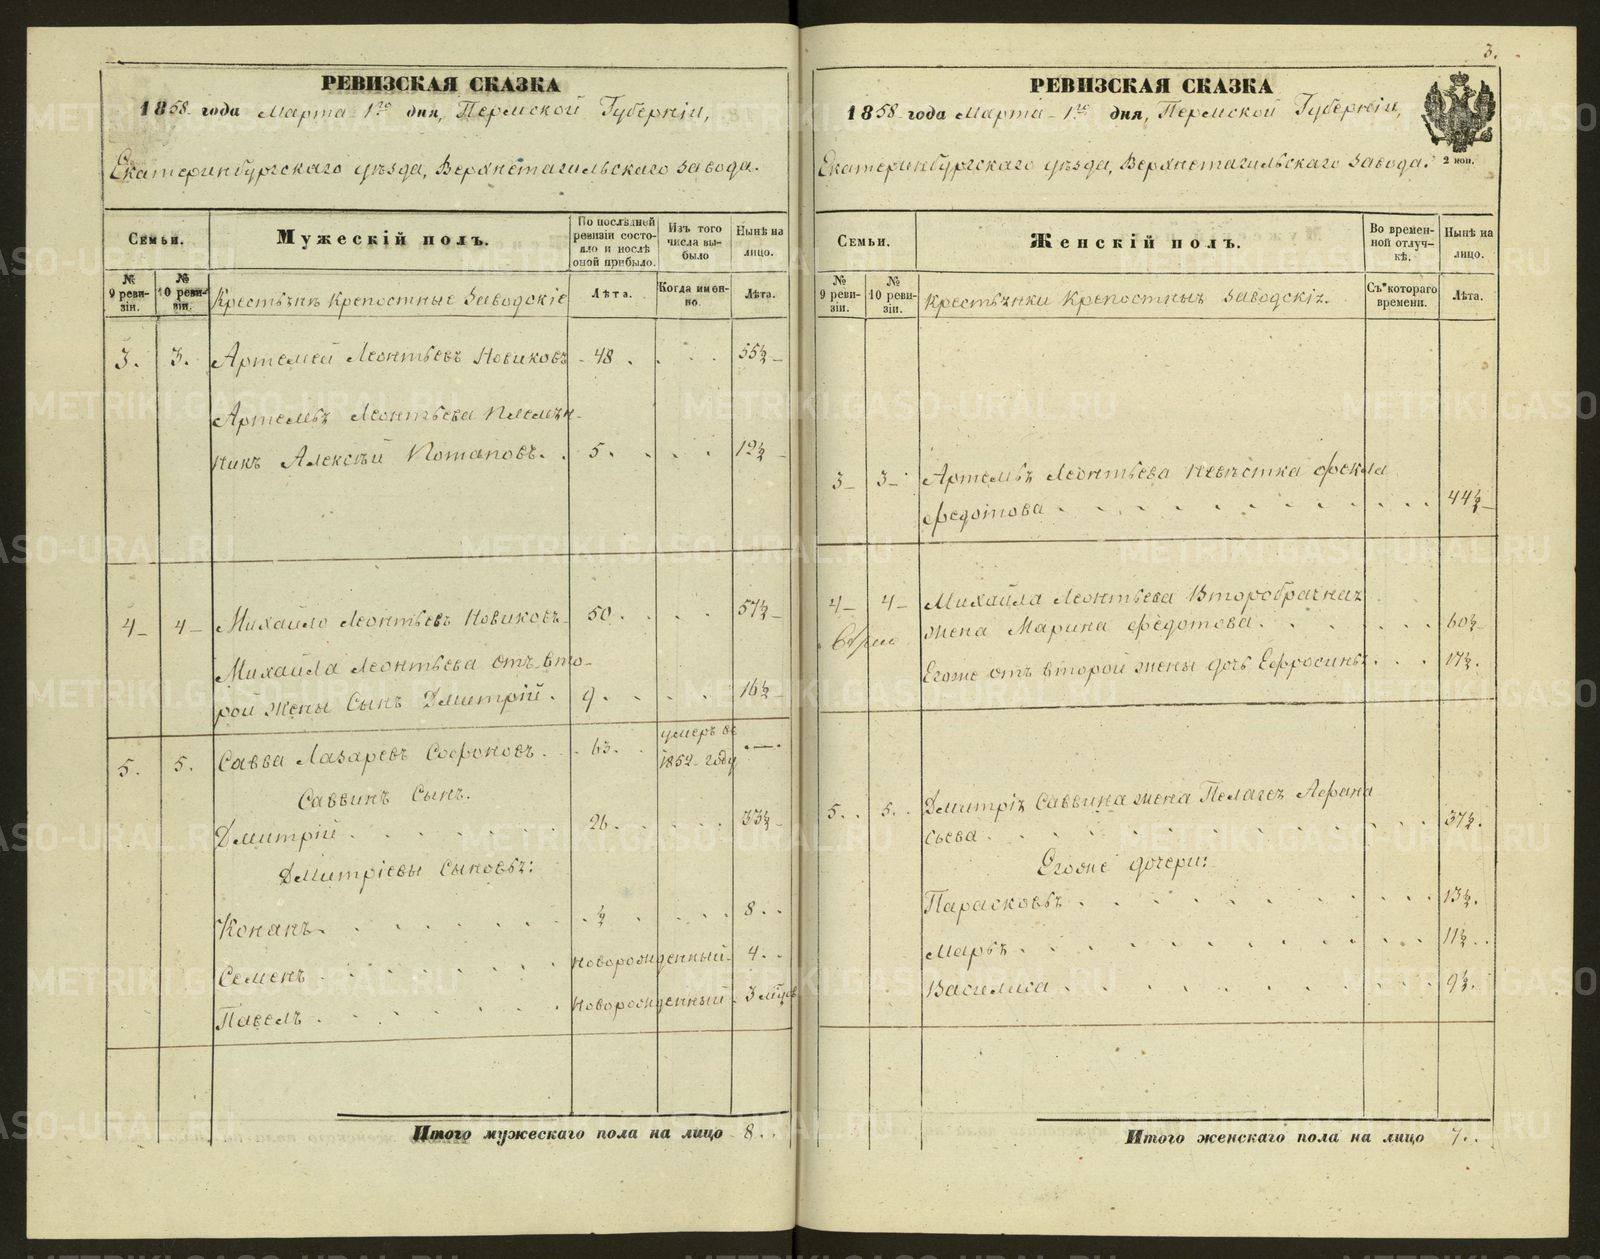 РЕВИЗСКАЯ СКАЗКА
1858 года Марта 1го дня, Пермской Губерніи,
Екатеринбургскаго уѣзда, Верхнетагильскаго завода.
Семьи.
Мужескій полъ.
По послѣдней ревизіи состояло и послѣ оной прибыло.
Изъ того числа выбыло
Нынѣ на лицо.
№ 9 ревизіи.
№ 10 ревизіи.
Крестьяне крепостные заводскіе
Лѣта.
Когда именно.
Лѣта.
3. 3. Артемей Леонтьевъ Новиковъ 48 . . . . 55½
Артемья Леонтьева племян-
никъ Алексѣй Потаповъ. . 5. . . . 12½
4 4 Михайло Леонтьевъ Новиковъ 50 . . . 57½
Михайла Леонтьева отъ вто-
рой жены сынъ Дмитрій. 9. . . . 16½
5. 5. Савва Лазаревъ Софоновъ. . 63. умеръ въ 1852 году . — .
Саввинъ сынъ.
Дмитрій . . . . . . 26. . . . 33½
Дмитріевы сыновья:
Конанъ. . . . . . . ½ . . . . 8 . .
Семенъ . . . . . . Новорожденный 4 . .
Павелъ . . . . . . Новорожденный 3 мѣсяц
Итого мужескаго пола на лицо 8 . .
3.
РЕВИЗСКАЯ СКАЗКА
1858 года Марта 1го дня, Пермской Губерніи,
Екатеринбургскаго уѣзда, Верхнетагильскаго завода.
2 коп.
Семьи.
Женскій полъ.
Во временной отлучкѣ.
Нынѣ на лицо.
№ 9 ревизіи.
№ 10 ревизіи.
Крестьянки крепостныя заводскія.
Съ котораго времени.
Лѣта.
3 3 Артемья Леонтьева невѣстка Фекла
Федотова . . . . . . . . 44½
4 4 Михайла Леонтьева второбрачная
жена Марина Федотова. . . . . 60½
Егоже отъ второй жены дочь Ефросинья . . . 17½.
5. . 5. . Дмитрія Саввина жена Пелагея Афана
сьева . . . . . . . . . 37½.
Егоже дочери:
Парасковья . . . . . . . . 13½.
Марья . . . . . . . . . 11½. .
Василиса . . . . . . . . 9½.
Итого женскаго пола на лицо 7 . .
METRIKI.GASO-URAL.RU